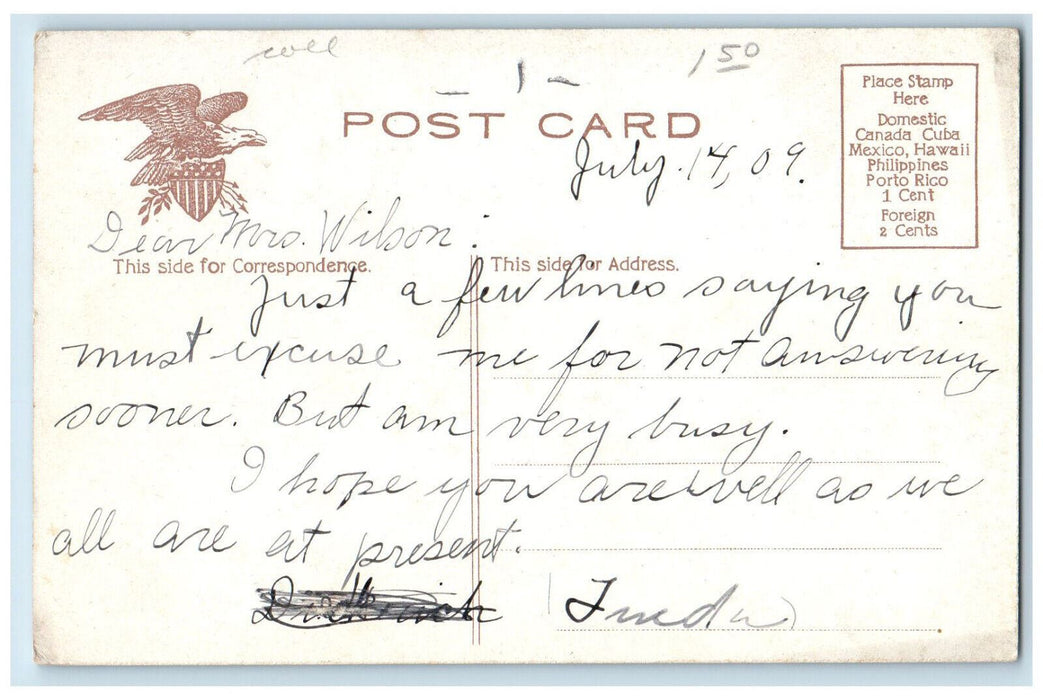 1 50
POST CARD
Place Stamp
Here
Domestic
Canada Cuba
Mexico, Hawaii
Philippines
Porto Rico
1 Cent
Foreign
2 Cents
July 14, 09.
Dear Mrs. Wilson:
This side for Correspondence.
This side for Address.
Just a few lines saying you
must excuse me for not answering
sooner. But am very busy.
I hope you are well as we
all are at present.